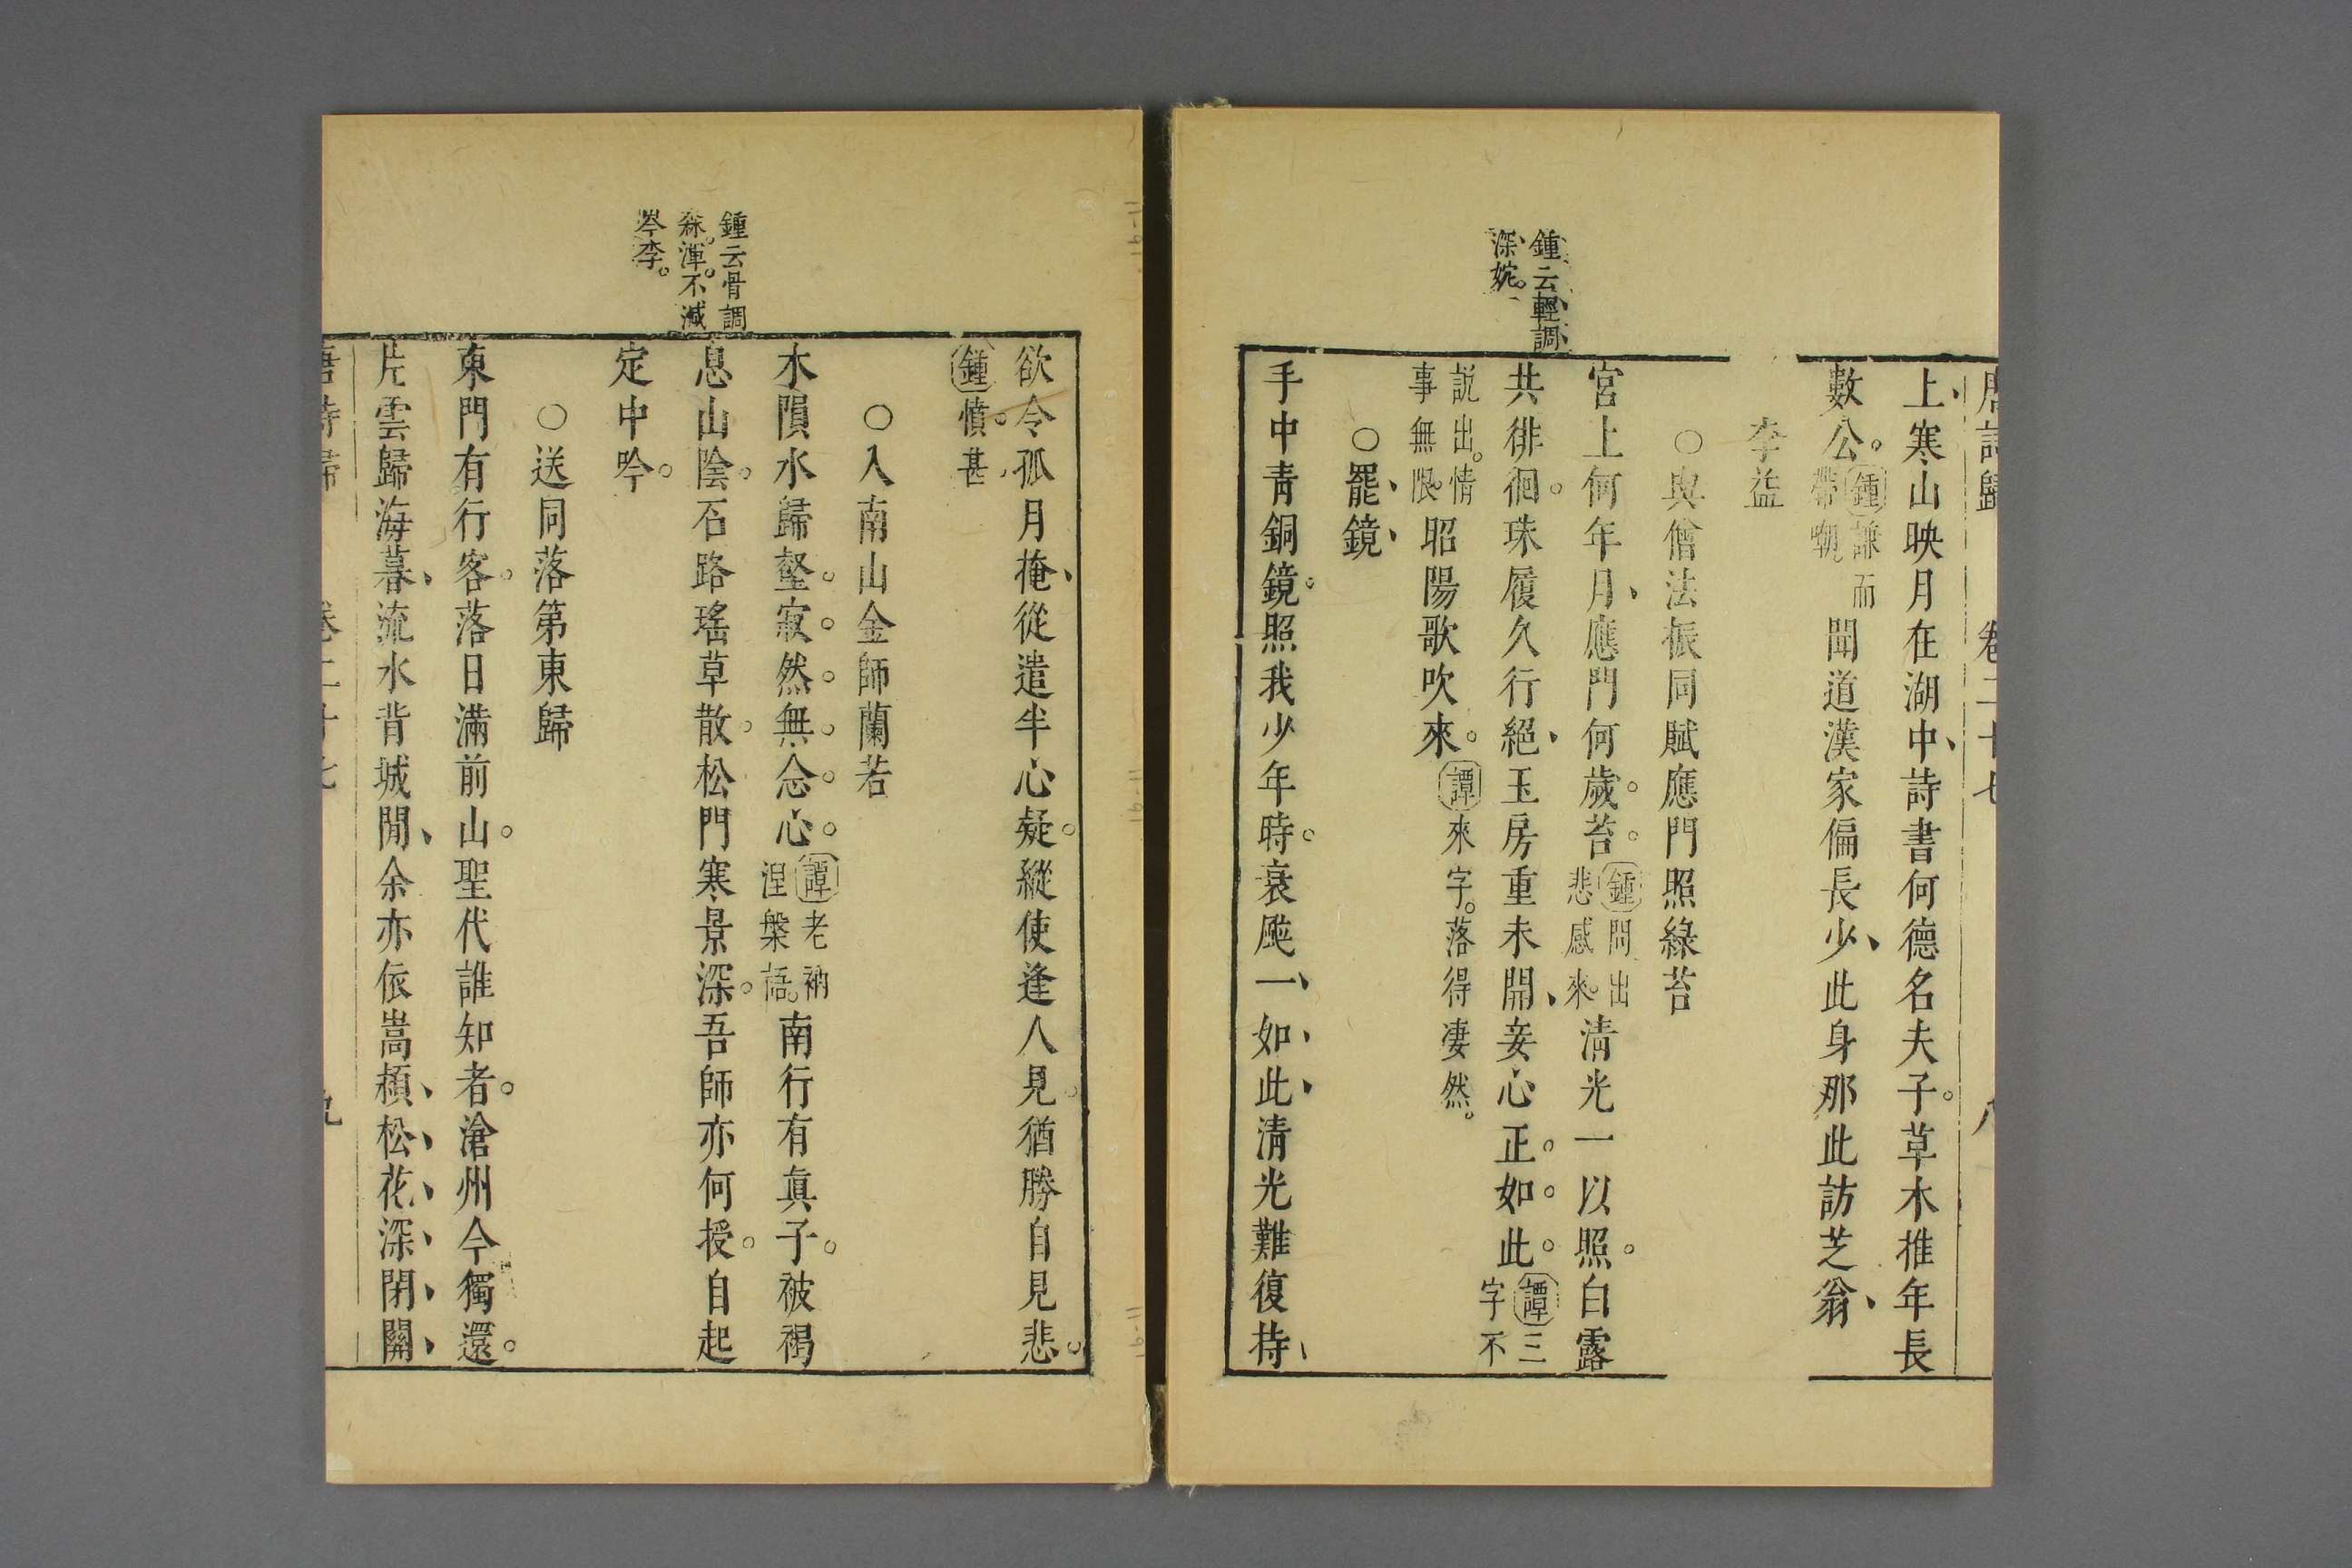 唐詩歸 卷二十七 八
上寒山映月在湖中詩書何德名夫子草木推年長
數公鍾謙而帶嘲聞道漢家偏長少此身那此訪芝翁
李益
○與僧法振同賦應門照綠苔
宮上何年月應門何歲苔鍾問出悲感來清光一以照白露
鍾云輕調
深婉
共徘徊珠履久行絕玉房重未開妾心正如此譚三字不
說出情事無限昭陽歌吹來譚來字落得凄然
○罷鏡
手中青銅鏡照我少年時衰颯一如此清光難復持
欲令孤月掩從遣半心疑縱使逢人見猶勝自見悲
鍾憤甚
○入南山金師蘭若
木隕水歸壑寂然無念心譚老衲涅槃語南行有真子被褐
鍾云骨調
森渾不減
岑李
息山陰石路瑤草散松門寒景深吾師亦何授自起
定中吟
○送同落第東歸
東門有行客落日滿前山聖代誰知者滄州今獨還
片雲歸海暮流水背城閒余亦依嵩潁松花深閉關
唐詩歸 卷二十七 九